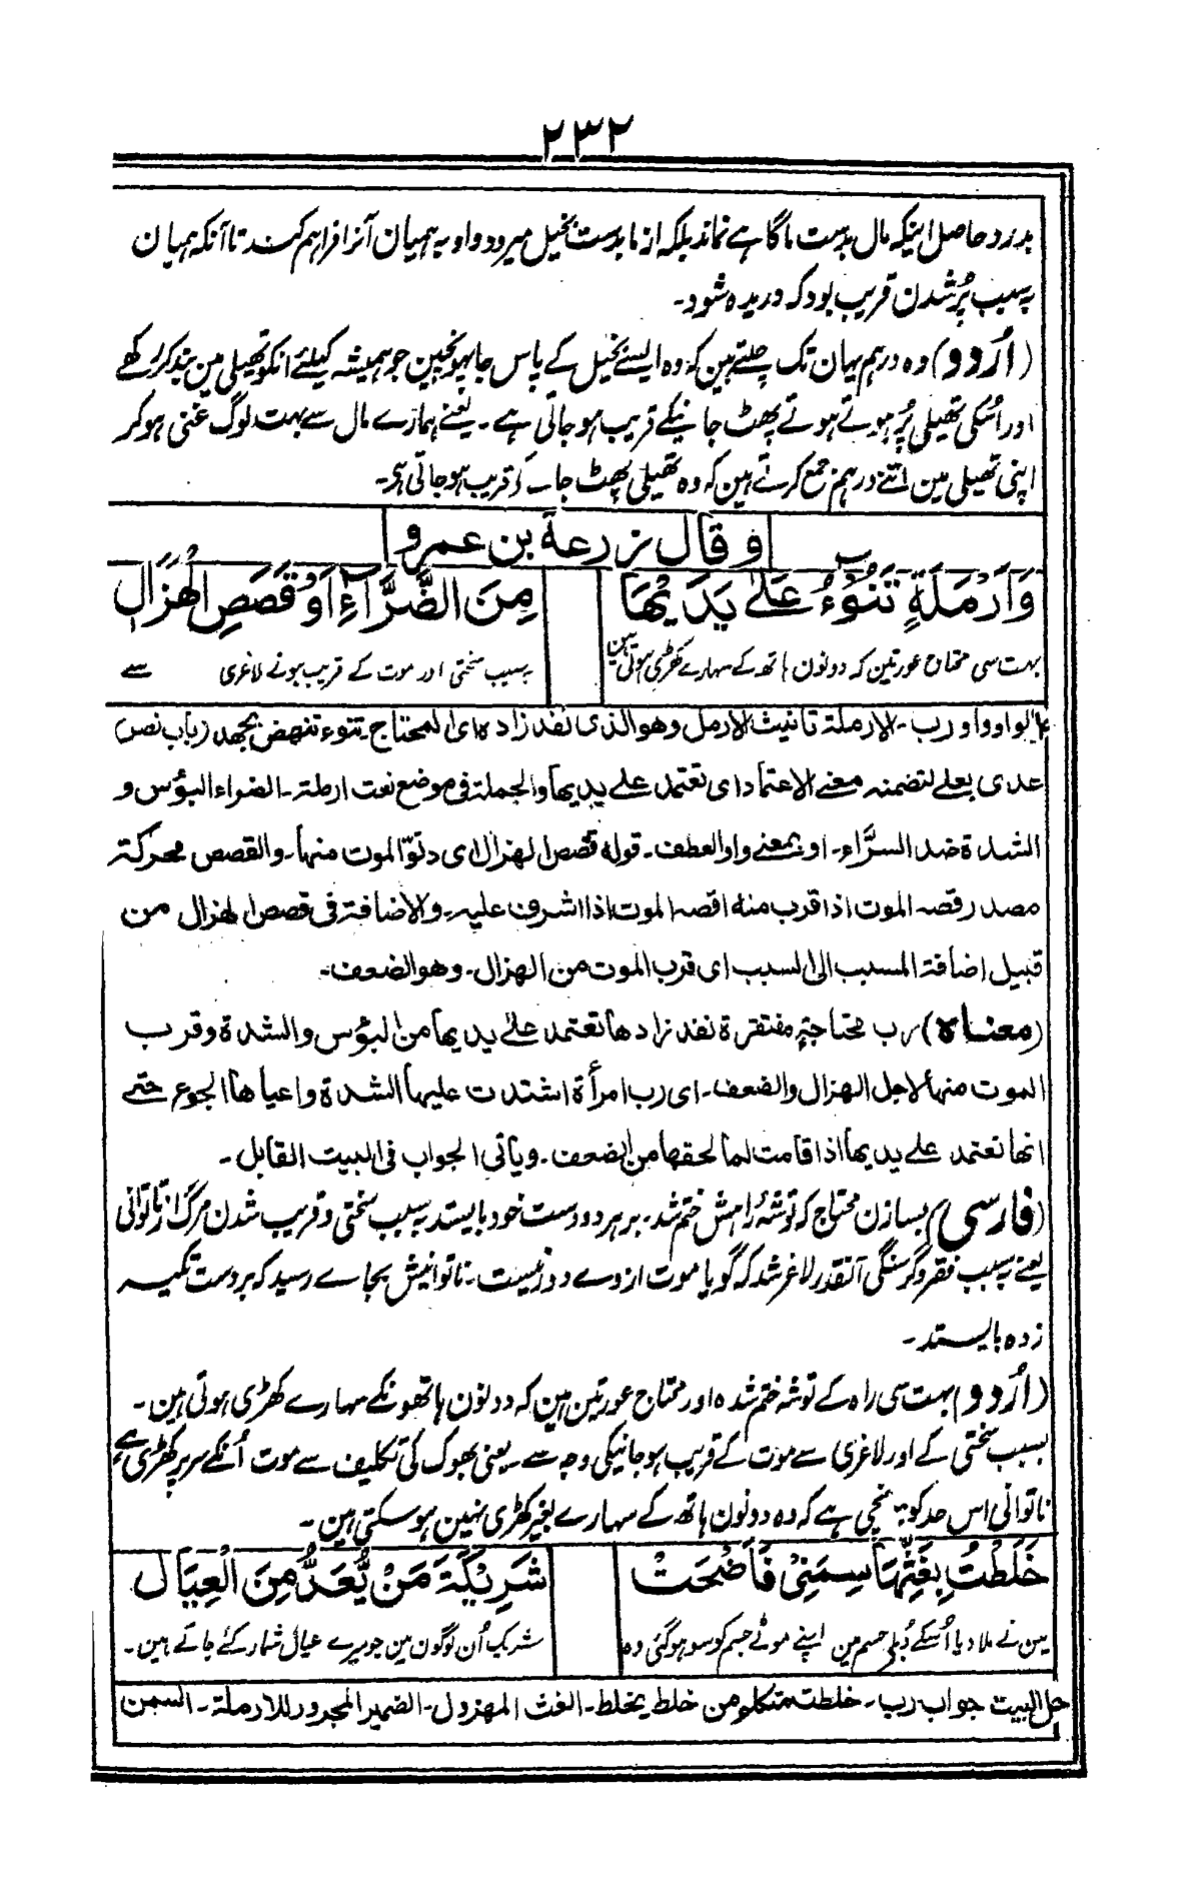 ٢٣٢
بدرد حاصل اینکہ مال بدست ما گاہے نماند بلکہ از ما بدست بخیل میرود و او بہ ہمیان آنرا فراہم کند تا آنکہ ہمیان
بسبب پُر شدن قریب بود کہ دریدہ شود۔
(اُردو) وہ درہم یہان تک چلتے ہین کہ وہ ایسے بخیل کے پاس جا پہونچین جو ہمیشہ کیلئے انکو تھیلی مین بند کر رکھے
اور اُسکی تھیلی پُر ہوتے ہوتے پھٹ جانیکے قریب ہو جاتی ہے۔ یعنے ہمارے مال سے بہت لوگ غنی ہو کر
اپنی تھیلی مین اتنے درہم جمع کرتے ہین کہ وہ تھیلی پھٹ جانے کے قریب ہو جاتی ہی۔
و قال زرعة بن عمرو
وَاَرْمَلَةٍ تَنُوْءُ عَلٰى يَدَيْهَا مِنَ الضَّرَّآءِ اَوْ قَصَصِ الْهُزَالِ
بہت سی محتاج عورتین کہ دونون ہاتھ کے سہارے کھڑی ہوتی ہین بسبب سختی اور موت کے قریب ہونے لاغری سے
الواو واو رب۔ الارملة تانيث الارمل وهو الذی نفد زاده ای المحتاج۔ تنوء تنهض بجهد (باب نصر)
عدی بعلى لتضمنه معنے الاعتماد ای تعتمد علے يديها والجملة فی موضع نعت ارملة۔ الضراء البؤس و
الشدة ضد السرَّاء۔ او بمعنے واو العطف۔ قوله قصص الهزال ای دنوّ الموت منها۔ والقصص محركة
مصدر قصه الموت اذا قرب منه اقصه الموت اذا اشرف عليه۔ والاضافة فی قصص الهزال من
قبيل اضافة المسبب الى السبب ای قرب الموت من الهزال۔ وهو الضعف۔
(معناه) رب محتاجة مفتقرة نفد زادها تعتمد علے يديها من البؤس والشدة وقرب
الموت منها لاجل الهزال والضعف۔ ای رب امرأة اشتدت عليها الشدة واعياها الجوع حتے
انها تعتمد علے يديها اذا قامت لما لحقها من الضعف۔ وياتی الجواب فی البيت القابل۔
(فارسی) بسا زن محتاج کہ توشۂ راہش ختم شد۔ بر ہر دو دست خود بایستد بسبب سختی و قریب شدن مرگ از ناتوانی
یعنے بسبب فقر و گرسنگی آنقدر لاغر شد کہ گویا موت از وے دور نیست۔ ناتوانیش بجاے رسید کہ بر دست تکیہ
زدہ بایستد۔
(اُردو) بہت سی راہ کے توشہ ختم شدہ اور محتاج عورتین ہین کہ دونون ہاتھونکے سہارے کھڑی ہوتی ہین۔
بسبب سختی کے اور لاغری سے موت کے قریب ہو جانیکی وجہ سے۔ یعنی بھوک کی تکلیف سے موت اُنکے سر پر کھڑی ہے
ناتوانی اس حد کو پہنچی ہے کہ وہ دونون ہاتھ کے سہارے بغیر کھڑی نہین ہو سکتی ہین۔
خَلَطْتُ بِغَثِّهَا سِمَنِیْ فَاَضْحَتْ شَرِيْكَةَ مَنْ يُّعَدُّ مِنَ الْعِيَالِ
مین نے ملا دیا اُسکے دُبلے جسم مین اپنے موٹے جسم کو سو ہو گئی وہ شریک اُن لوگون مین جو میرے عیال شمار کئے جاتے ہین۔
حل البيت جواب رب۔ خلطت متكلم من خلط يخلط۔ الغث المهزول۔ الضمير المجرور للارملة۔ السمن